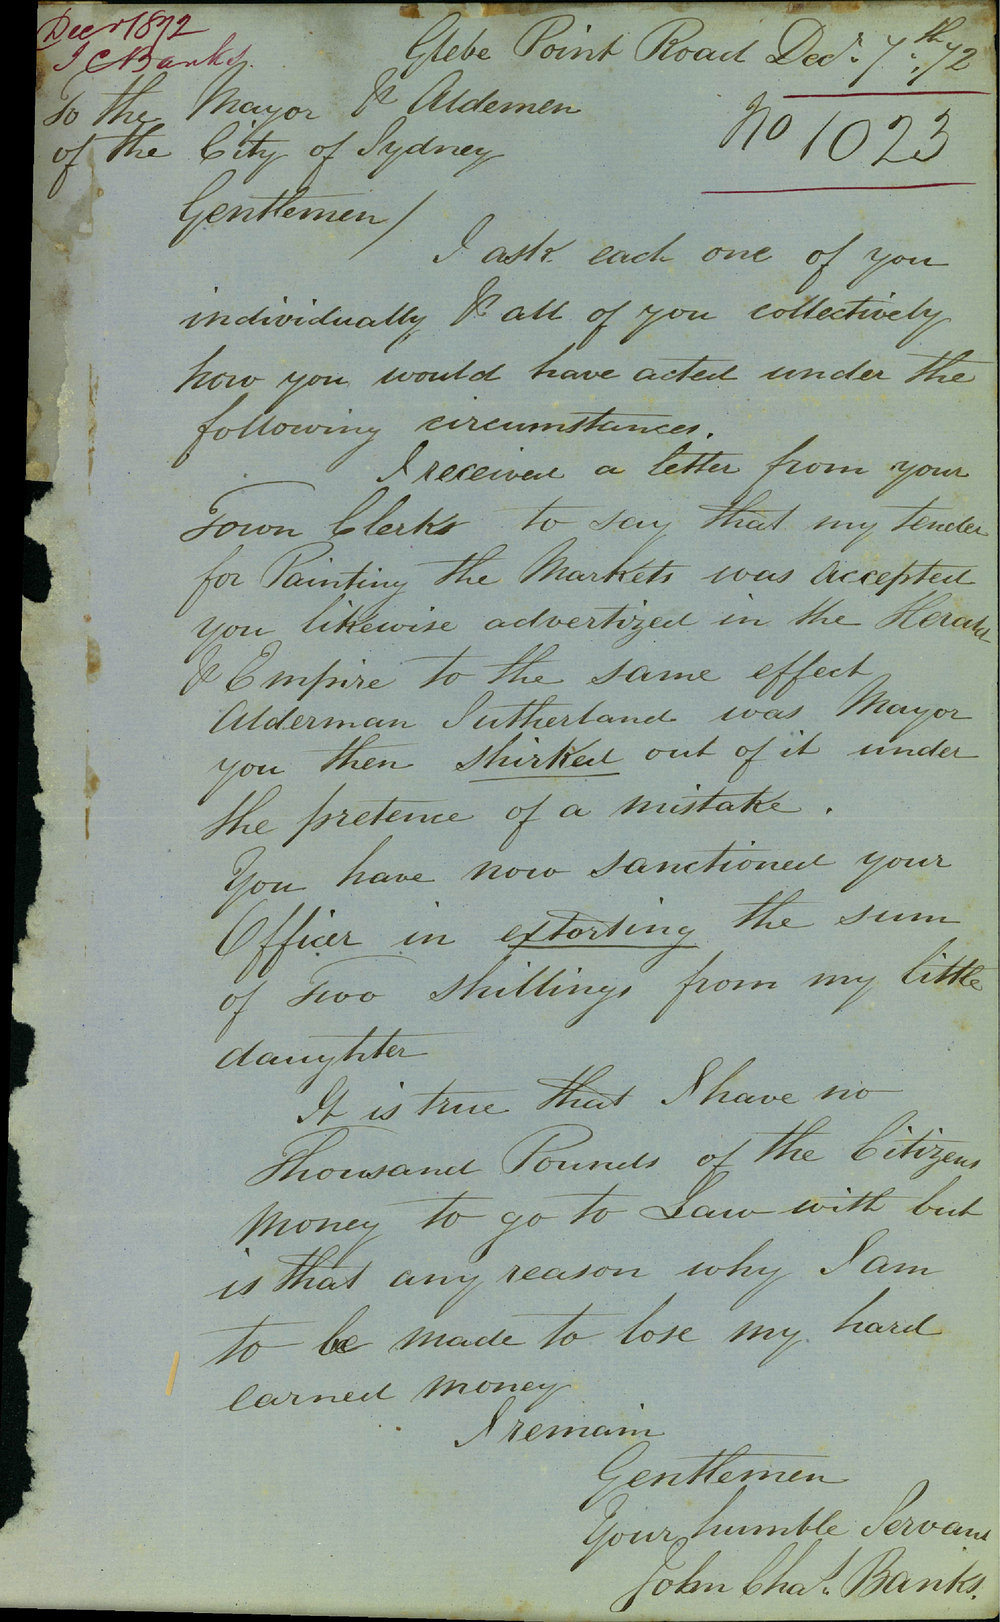 Decr 1872
J C Banks.
Glebe Point Road Decr. 7th. 72
To the Mayor & Aldemen
of the City of Sydney
No 1023
Gentlemen/
I ask each one of you
individually & all of you collectively
how you would have acted under the
following circumstances.
I received a letter from your
Town Clerks to say that my tender
for Painting the Markets was Accepted
you likewise advertized in the Herald
& Empire to the same effect
Alderman Sutherland was Mayor
you then shirked out of it under
the pretence of a mistake.
You have now sanctioned your
Officer in extorting the sum
of Two shillings from my little
daughter
It is true that I have no
Thousand Pounds of the Citizens
Money to go to Law with but
is that any reason why I am
to be made to lose my hard
earned money
I remain
Gentlemen
Your humble Servant
John Chas. Banks.